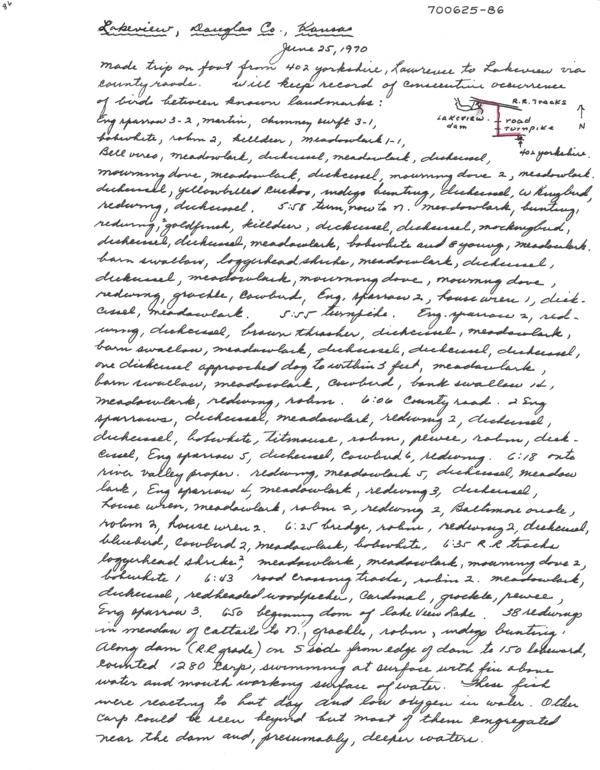 86
700625-86
Lakeview, Douglas Co., Kansas
June 25, 1970
Made trip on foot from 402 Yorkshire, Lawrence to Lakeview via
county roads. Will keep record of consecutive occurrence
of birds between known landmarks:
R.R. Tracks
Lakeview
dam
road
turnpike
N
402 Yorkshire
Eng sparrow 3-2, martin, chimney swift 3-1,
bobwhite, robin 2, killdeer, meadowlark 1-1,
Bell vireo, meadowlark, dickcissel, meadowlark, dickcissel,
mourning dove, meadowlark, dickcissel, mourning dove 2, meadowlark.
dickcissel, yellowbilled cuckoo, indigo bunting, dickcissel, W Kingbird,
redwing, dickcissel. 5:58 turn, now to N. meadowlark, bunting,
redwing, goldfinch, killdeer, dickcissel, dickcissel, mockingbird,
dickcissel, dickcissel, meadowlark, bobwhite and 8 young, meadowlark.
barn swallow, loggerhead shrike, meadowlark, dickcissel,
dickcissel, meadowlark, mourning dove, mourning dove,
redwing, grackle, cowbird, Eng. sparrow 2, house wren 1, dick-
cissel, meadowlark. 5:55 turnpike. Eng. sparrow 2, red-
wing, dickcissel, brown thrasher, dickcissel, meadowlark,
barn swallow, meadowlark, dickcissel, dickcissel, dickcissel,
one dickcissel approached dog to within 3 feet, meadowlark,
barn swallow, meadowlark, cowbird, bank swallow 14,
meadowlark, redwing, robin. 6:06 County road. 2 Eng
sparrows, dickcissel, meadowlark, redwing 2, dickcissel,
dickcissel, bobwhite, titmouse, robin, pewee, robin, dick-
cissel, Eng sparrow 5, dickcissel, cowbird 6, redwing. 6:18 onto
river valley proper. redwing, meadowlark 5, dickcissel, meadow
lark, Eng sparrow 4, meadowlark, redwing 3, dickcissel,
house wren, meadowlark, robin 2, redwing 2, Baltimore oriole,
robin 3, house wren 2. 6:25 bridge, robin, redwing 2, dickcissel,
bluebird, cowbird 2, meadowlark, bobwhite, 6:35 R.R. tracks
loggerhead shrike 2, meadowlark, meadowlark, mourning dove 2,
bobwhite 1 6:43 road crossing tracks, robin 2. meadowlark,
dickcissel, redheaded woodpecker, cardinal, grackle, pewee,
Eng sparrow 3. 650 beginning dam of Lake View Lake. 38 redwings
in meadow of cattails to N., grackle, robin, indigo bunting.
Along dam (RR grade) on S side from edge of dam to 150 lakeward,
counted 1280 carp, swimming at surface with fin above
water and mouth working surface of water. These fish
were reacting to hot day and low oxygen in water. Other
carp could be seen beyond but most of them congregated
near the dam and, presumably, deeper waters.